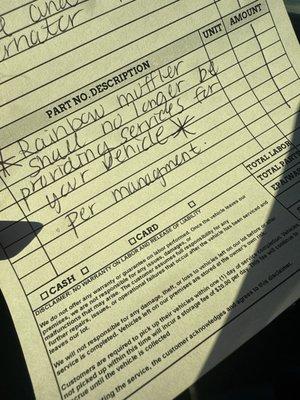 ernator
UNIT AMOUNT
PART NO. DESCRIPTION
* Rainbow muffler
Shall no longer be
providing services for
your vehicle *
Per managment.
TOTAL LABOR
TOTAL PARTS
EPA/WAS
CASH
CARD
DISCLAIMER: NO WARRANTY ON LABOR AND RELEASE OF LIABILITY
We do not offer any warranty or guarantee on labor performed. Once the vehicle leaves our
premises, we are not responsible for any issues, damages, or liability for any
malfunctions that may arise. The customer assumes full responsibility for any
further repairs, issues, or operational failures that occur after the vehicle has been serviced and
leaves our lot.
We will not responsible for any damage, theft, or loss to vehicles left on our lot before or after
service is completed. Vehicles left on our premises are stored at the owner's own risk.
Customers are required to pick up their vehicles within one (1) day of service completion. Vehicles
not picked up within this time will incur a storage fee of $35.00 per day, this fee will continue to
accrue until the vehicle is collected
the service, the customer acknowledges and agrees to this disclaimer.